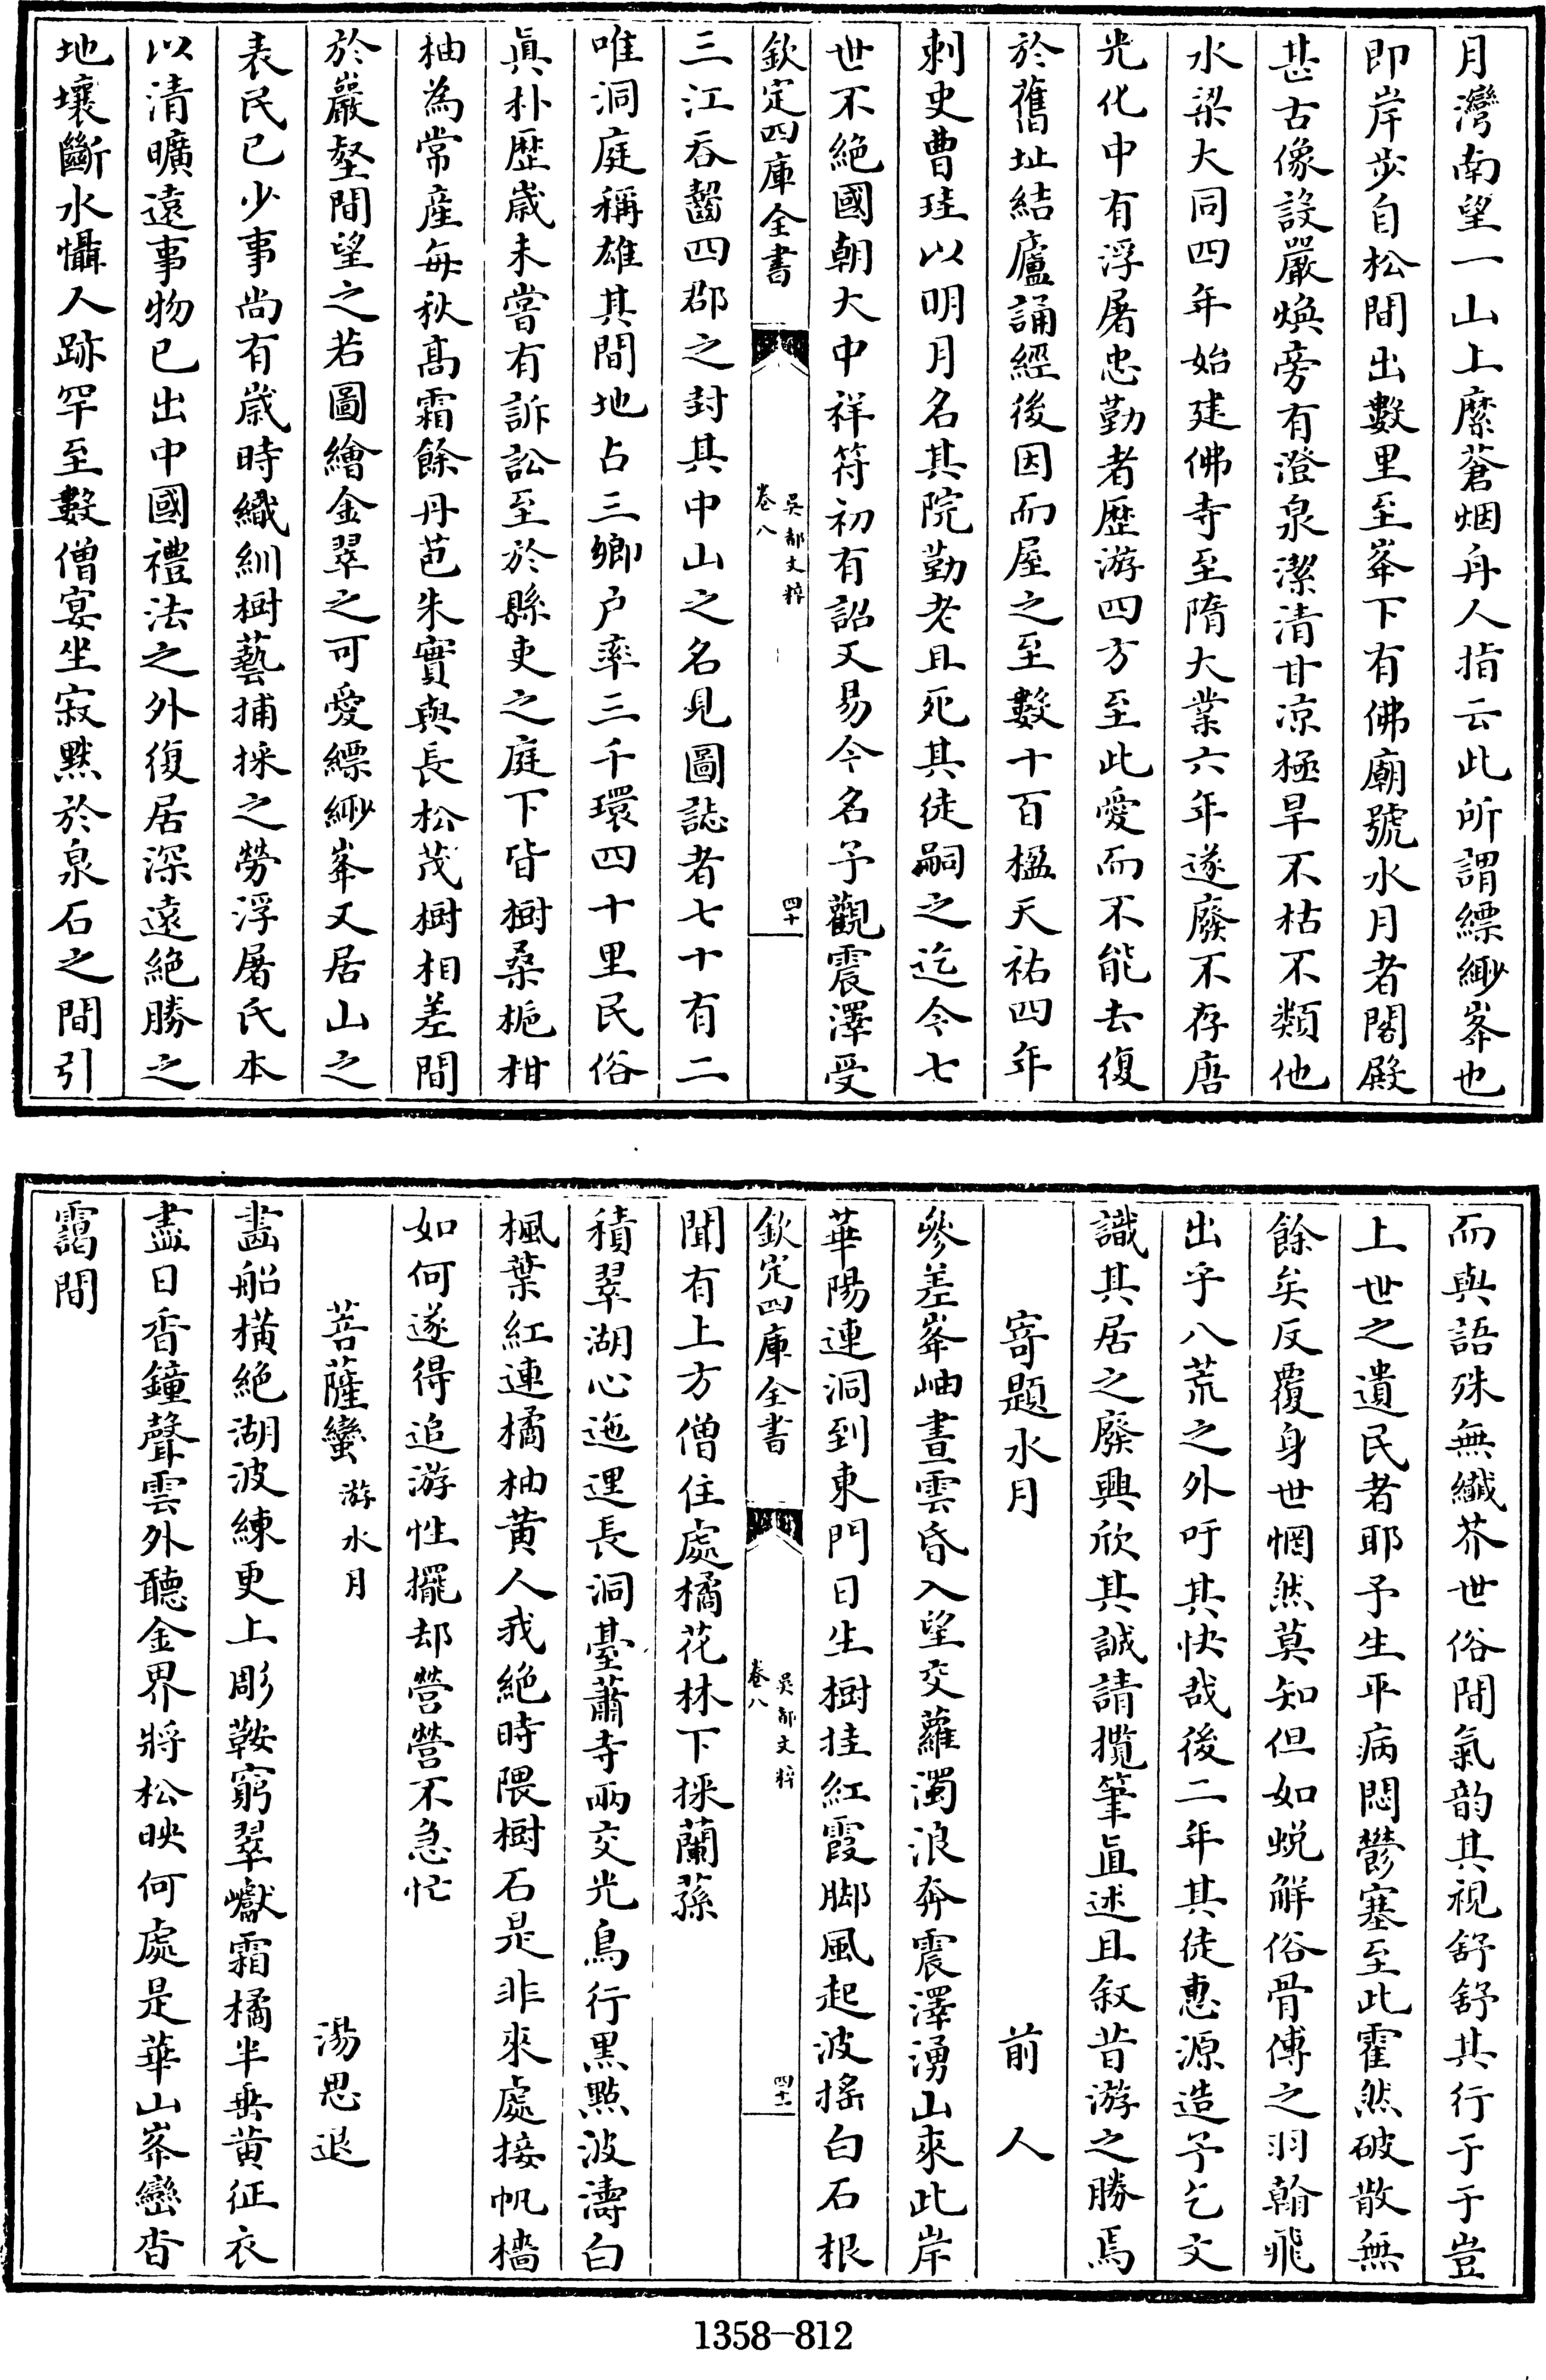 月灣南望一山上縻蒼烟舟人指云此所謂縹緲峯也
即岸步自松間出數里至峯下有佛廟號水月者閣殿
甚古像設嚴煥旁有澄泉潔清甘凉極旱不枯不類他
水梁大同四年始建佛寺至隋大業六年遂廢不存唐
光化中有浮屠忠勤者歴游四方至此愛而不能去復
於舊址結廬誦經後因而屋之至數十百楹天祐四年
刺史曹珪以明月名其院勤老且死其徒嗣之迄今七
世不絶國朝大中祥符初有詔又易今名予觀震澤受
欽定四庫全書
吳都文粹
卷八
四十
三江吞齧四郡之封其中山之名見圖誌者七十有二
唯洞庭稱雄其間地占三鄉户率三千環四十里民俗
眞朴歴歲未嘗有訴訟至於縣吏之庭下皆樹桑梔柑
柚為常産每秋髙霜餘丹苞朱實與長松茂樹相差間
於巖壑間望之若圖繪金翠之可愛縹緲峯又居山之
表民已少事尚有歲時織紃樹藝捕採之勞浮屠氏本
以清曠遠事物已出中國禮法之外復居深遠絶勝之
地壤斷水懾人跡罕至數僧宴坐寂黙於泉石之間引
而與語殊無纎芥世俗間氣韵其視舒舒其行于于豈
上世之遺民者耶予生平病悶鬱塞至此霍然破散無
餘矣反覆身世惘然莫知但如蜕解俗骨傅之羽翰飛
出乎八荒之外吁其快哉後二年其徒惠源造予乞文
識其居之廢興欣其誠請攬筆直述且叙昔游之勝焉
寄題水月 前人
參差峯岫晝雲昏入望交蘿濁浪奔震澤湧山來此岸
華陽連洞到東門日生樹挂紅霞脚風起波搖白石根
欽定四庫全書
吳都文粹
卷八
四十一
聞有上方僧住處橘花林下採蘭蓀
積翠湖心迤逕長洞臺蕭寺兩交光鳥行黑點波濤白
楓葉紅連橘柚黄人我絶時隈樹石是非來處接帆檣
如何遂得追游性擺却營營不急忙
菩薩蠻 游水月 湯思退
畵船横絶湖波練更上彫鞍窮翠巘霜橘半垂黄征衣
盡日香鐘聲雲外聽金界將松映何處是華山峯巒杳
靄間
1358-812